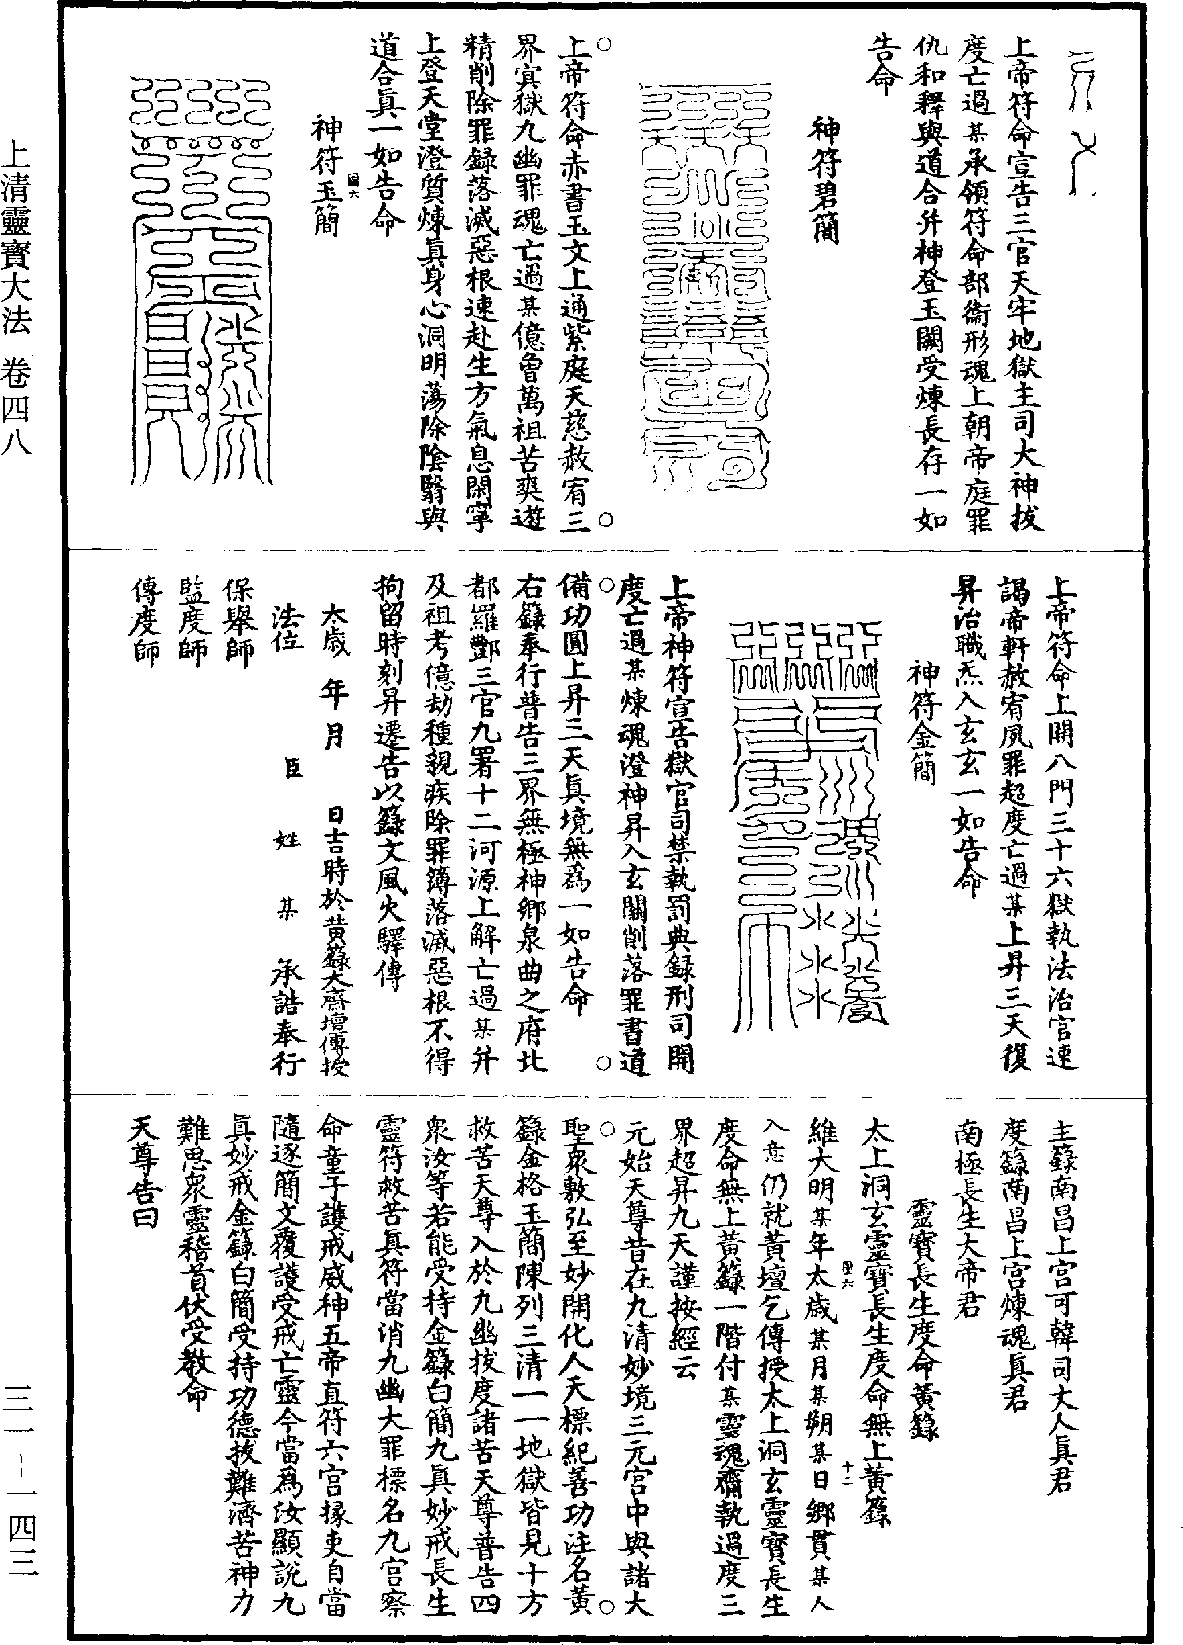 上帝符命宣告三官天牢地獄主司大神拔
度亡過某承領符命部衞形魂上朝帝庭罪
仇和釋與道合并神登玉闕受煉長存一如
告命
神符碧簡
上帝符命赤書玉文上通紫庭天慈赦宥三
界寘獄九幽罪魂亡過某億曾萬祖苦爽遊
精削除罪録落滅惡根速赴生方氣息閑寧
上登天堂澄質煉眞身心洞明蕩除陰翳與
道合眞一如告命
神符玉簡
圖六
上帝符命上開八門三十六獄執法治官速
謁帝軒赦宥夙罪超度亡過某上昇三天復
昇治職炁入玄玄一如告命
神符金簡
上帝神符宣告獄官司禁執罰典録刑司開
度亡過某煉魂澄神昇入玄關削落罪書道
備功圓上昇三天眞境無爲一如告命
右籙奉行普告三界無極神鄉泉曲之府北
都羅酆三官九署十二河源上解亡過某幷
及祖考億劫種親疾除罪簿落滅惡根不得
拘留時刻昇遷告以籙文風火驛傳
太歲 年 月 日吉時於黄籙大齋壇傳授
法位 臣 姓 某 承誥奉行
保舉師
監度師
傳度師
主籙南昌上宫可韓司丈人眞君
度籙南昌上宫煉魂眞君
南極長生大帝君
靈寶長生度命黄籙
太上洞玄靈寶長生度命無上黄籙
維大明某年太歲某月某朔某日鄉貫某人
圖六
十二
入意仍就黄壇乞傳授太上洞玄靈寶長生
度命無上黄籙一階付某靈魂襧執過度三
界超昇九天謹按經云
元始天尊昔在九清妙境三元宫中與諸大
聖衆敷弘至妙開化人天標紀善功注名黄
籙金格玉簡陳列三清一一地獄皆見十方
救苦天尊入於九幽拔度諸苦天尊普告四
衆汝等若能受持金籙白簡九眞妙戒長生
靈符救苦眞符當消九幽大罪標名九宫察
命童子護戒威神五帝直符六宫掾吏自當
隨逐簡文覆護受戒亡靈今當爲汝顯説九
眞妙戒金籙白簡受持功德拔難濟苦神力
難思衆靈稽首伏受教命
天尊告曰
上清靈寶大法 卷四八
三一－一四三